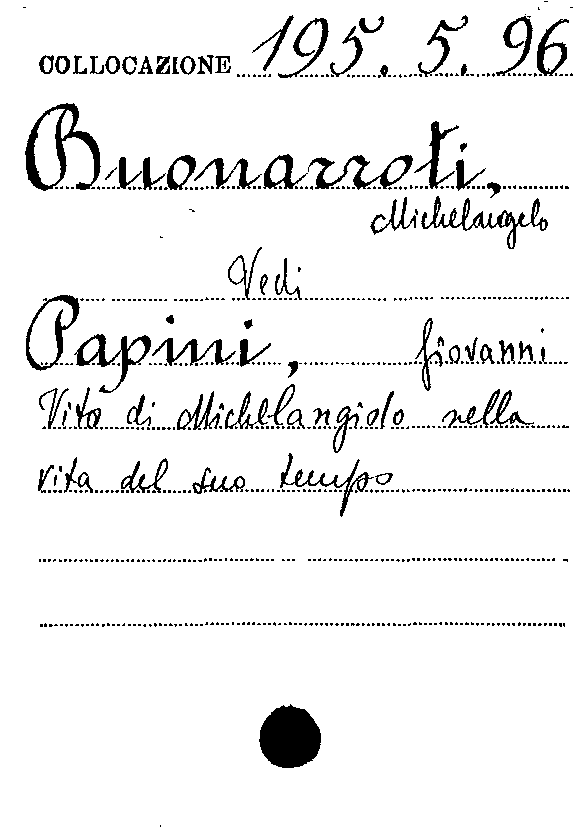 COLLOCAZIONE 195. 5. 96
Buonarroti,
Michelangelo
Vedi
Papini, Giovanni
Vita di Michelangiolo nella
vita del suo tempo